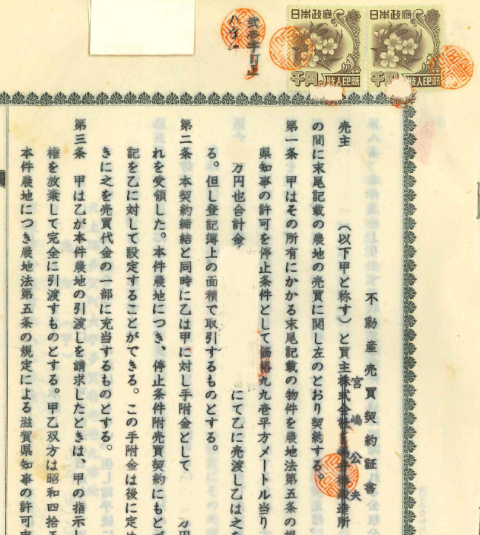 日本政府
千円
収入印紙
日本政府
千円
収入印紙
弐字訂正
不動産売買契約証書
宮嶋公夫
売主
(以下甲と称す)と買主株式会社
造所
の間に末尾記載の農地の売買に関し左のとおり契約する。
第一条 甲はその所有にかかる末尾記載の物件を農地法第五条の規
県知事の許可を停止条件として価格九九壱平方メートル当り
万円也合計金
にて乙に売渡し乙は之を
る。但し登記簿上の面積で取引するものとする。
第二条 本契約締結と同時に乙は甲に対し手附金として
万円
れを受領した。本件農地につき、停止条件附売買契約にもとづ
記を乙に対して設定することができる。この手附金は後に定め
きに之を売買代金の一部に充当するものとする。
第三条 甲は乙が本件農地の引渡しを請求したときは、甲の指示し
権を放棄して完全に引渡すものとする。甲乙双方は昭和四拾五
本件農地につき農地法第五条の規定による滋賀県知事の許可申